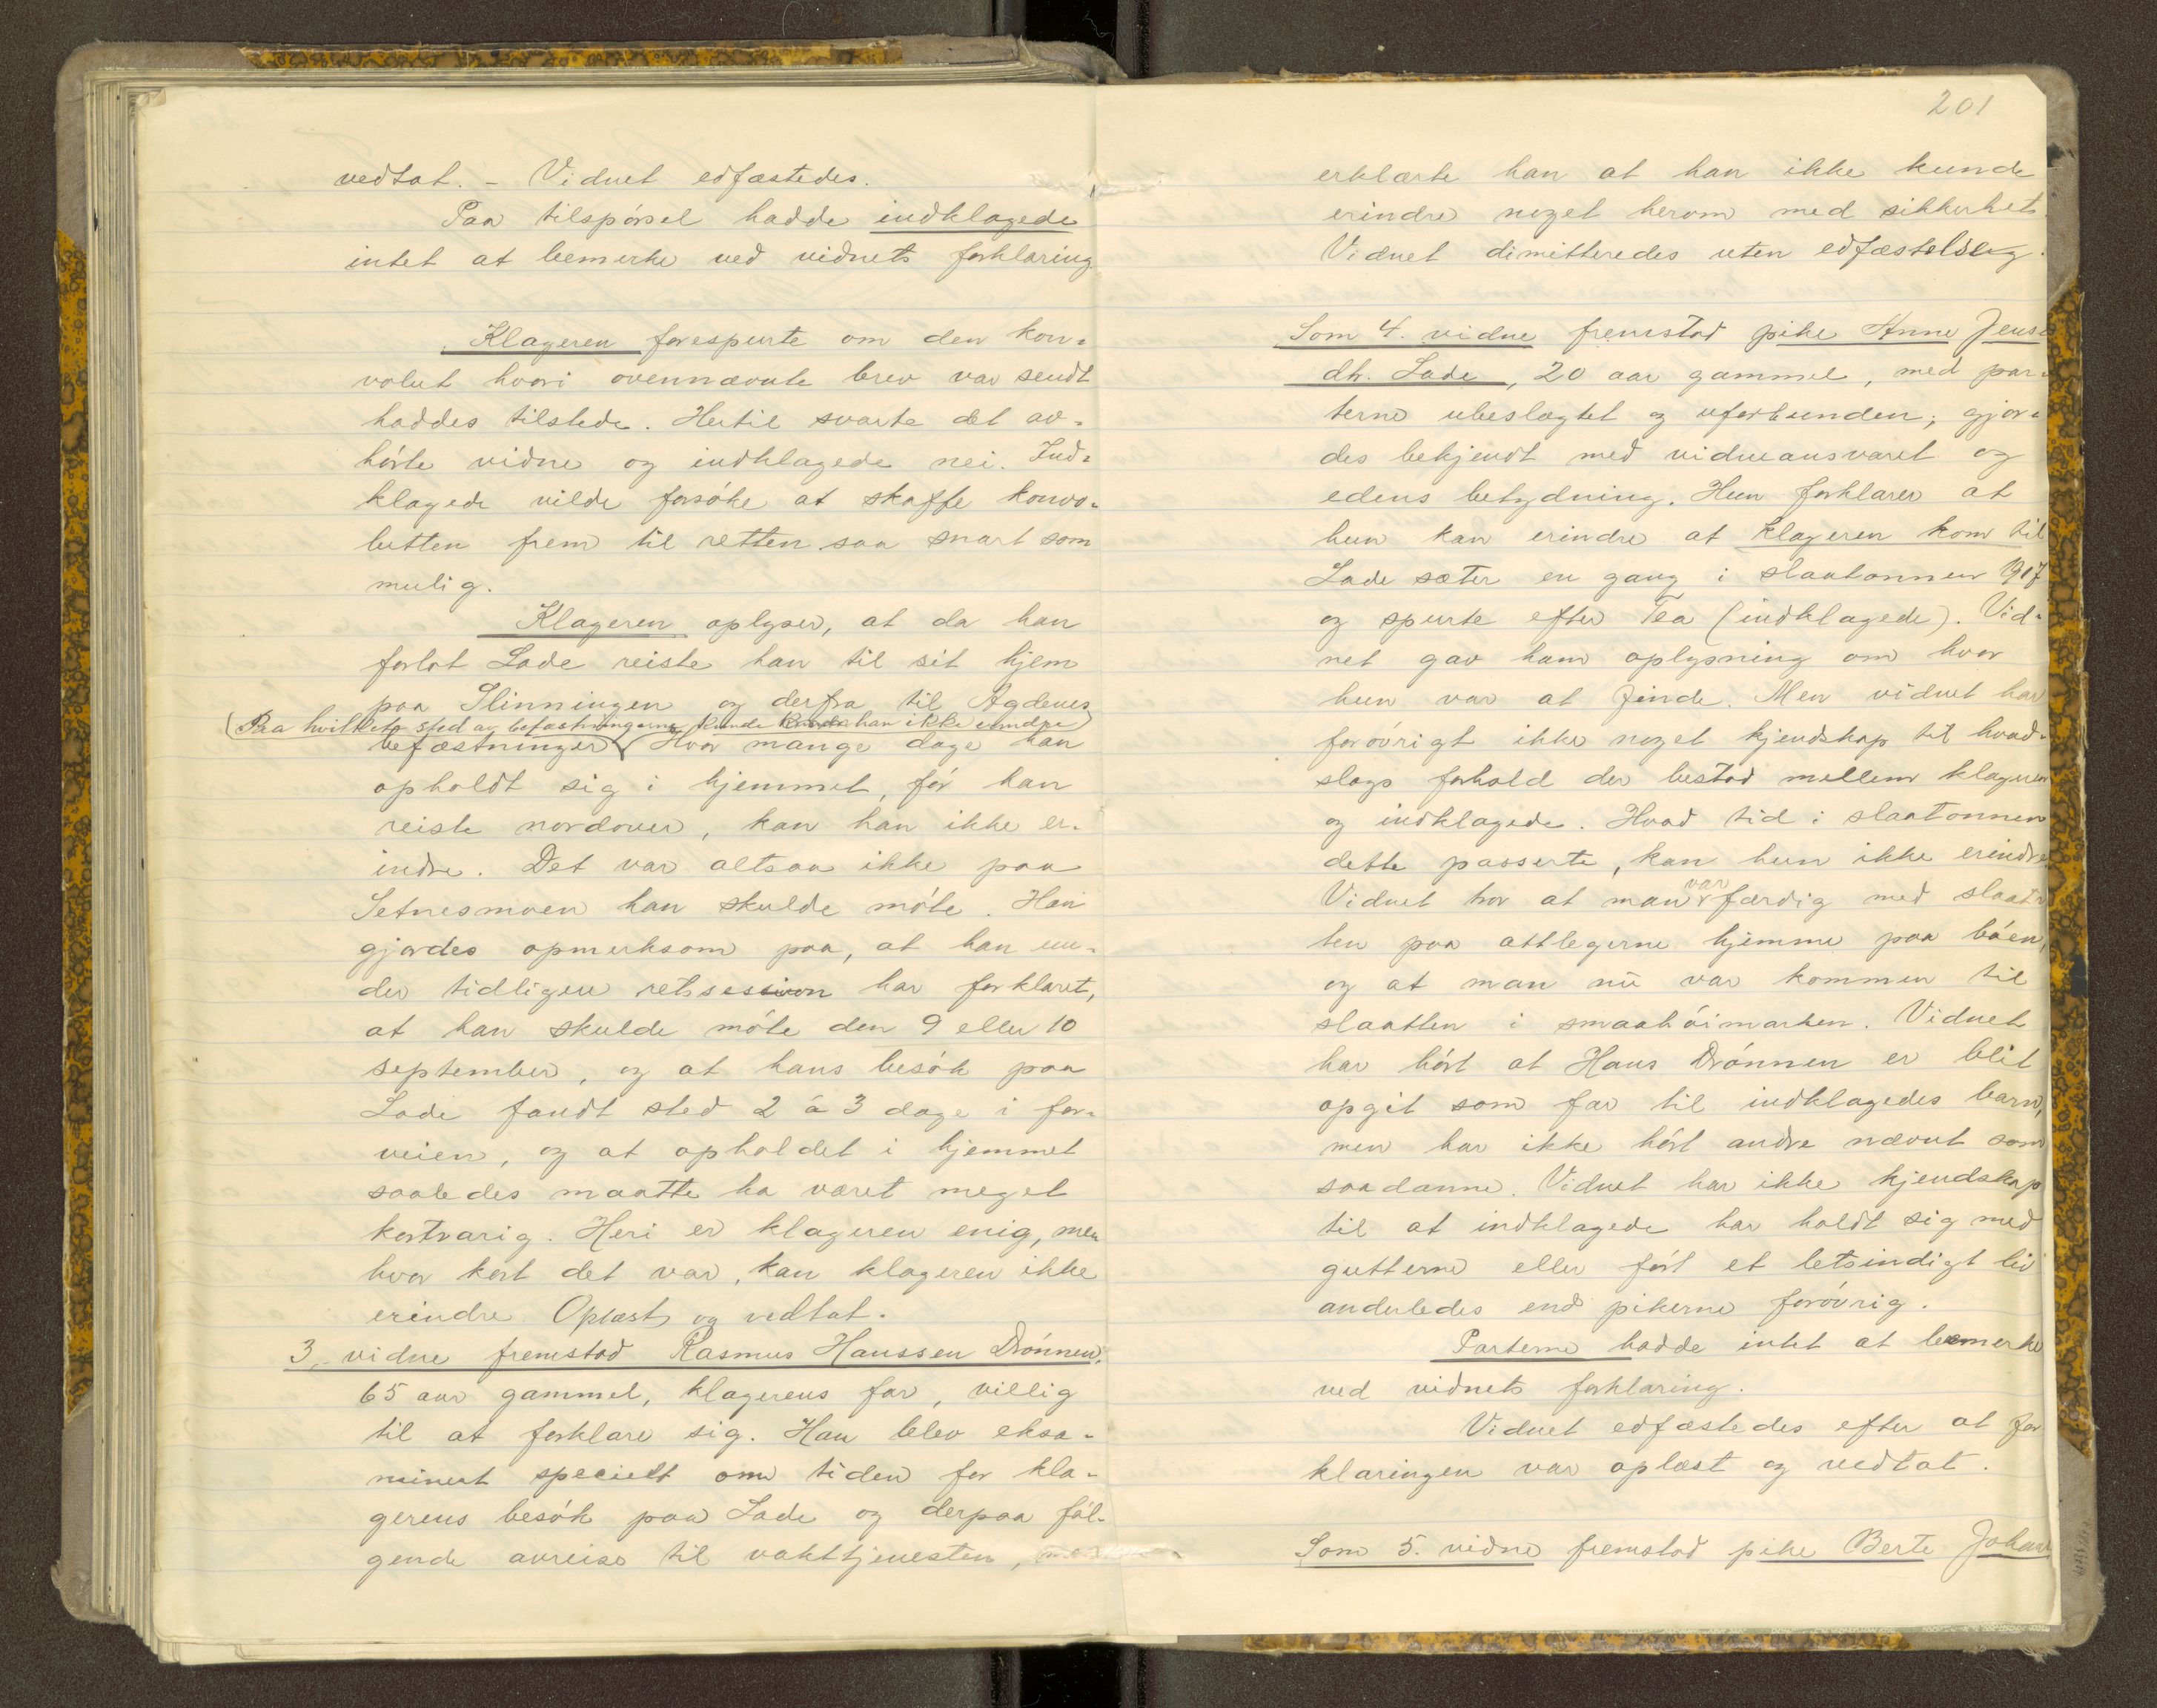 vedtat. - Vidnet edfæstedes.
Paa tilspörsel hadde indklagede
intet at bemerke ved vidnets forklaring
Klageren forespurte om den kon-
volut hvori ovennævnte brev var sendt
haddes tilstede. Hertil svarte det av-
hörte vidne og indklagede nei. Ind-
klagede vilde forsöke at skaffe konvo-
lutten frem til retten saa snart som
mulig.
Klageren oplyser, at da han
forlot Lade reiste han til sit hjem
paa Slinningen og derfra til Agdenes
(Paa hvilket sted av befæstningerne kunde han ikke erindre)
befæstninger Hvor mange dage han
opholdt sig i hjemmet, för han
reiste nordover, kan han ikke er-
indre. Det var altsaa ikke paa
Setnesmoen han skulde möte. Han
gjordes opmerksom paa, at han un-
der tidligere retssession har forklaret,
at han skulde möte den 9 eller 10
september, og at hans besök paa
Lade fandt sted 2 à 3 dage i for-
veien, og at opholdet i hjemmet
saaledes maatte ha været meget
kortvarig. Heri er klageren enig, men
hvor kort det var, kan klageren ikke
erindre Oplæst og vedtat.
3. vidne fremstod Rasmus Hanssen Drönnen,
65 aar gammel, klagerens far, villig
til at forklare sig. Han blev eksa-
minert specielt om tiden for kla-
gerens besök paa Lade og derpaa föl-
gende avreise til vakttjenesten,
201
erklærte han at han ikke kunde
erindre noget herom med sikkerhet.
Vidnet dimitteredes uten edfæstelse.
Som 4. vidne fremstod pike Anne Jens
dtr. Lade, 20 aar gammel, med par-
terne ubeslægtet og uforbunden; gjor-
des bekjendt med vidneansvaret og
edens betydning. Hun forklarer at
hun kan erindre at klageren kom til
Lade sæter en gang i slaatonnen 1917
og spurte efter Tea (indklagede). Vid-
net gav ham oplysning om hvor
hun var at finde. Men vidnet har
forövrigt ikke noget kjendskap til hvad-
slags forhold der bestod mellem klageren
og indklagede. Hvad tid i slaatonnen
dette passerte, kan hun ikke erindre.
Vidnet tror at man var færdig med slaat-
ten paa attlegerne hjemme paa böen,
og at man nu var kommen til
slaatten i smaahöimarken. Vidnet
har hört at Hans Drönnen er blit
opgit som far til indklagedes barn,
men har ikke hört andre nævnt som
saadanne. Vidnet har ikke kjendskap
til at indklagede har holdt sig med
gutterne eller fört et letsindigt liv
anderledes end pikerne forövrig.
Parterne hadde intet at bemerke
ved vidnets forklaring.
Vidnet edfæstedes efter at for
klaringen var oplæst og vedtat.
Som 5. vidne fremstod pike Berte Johan